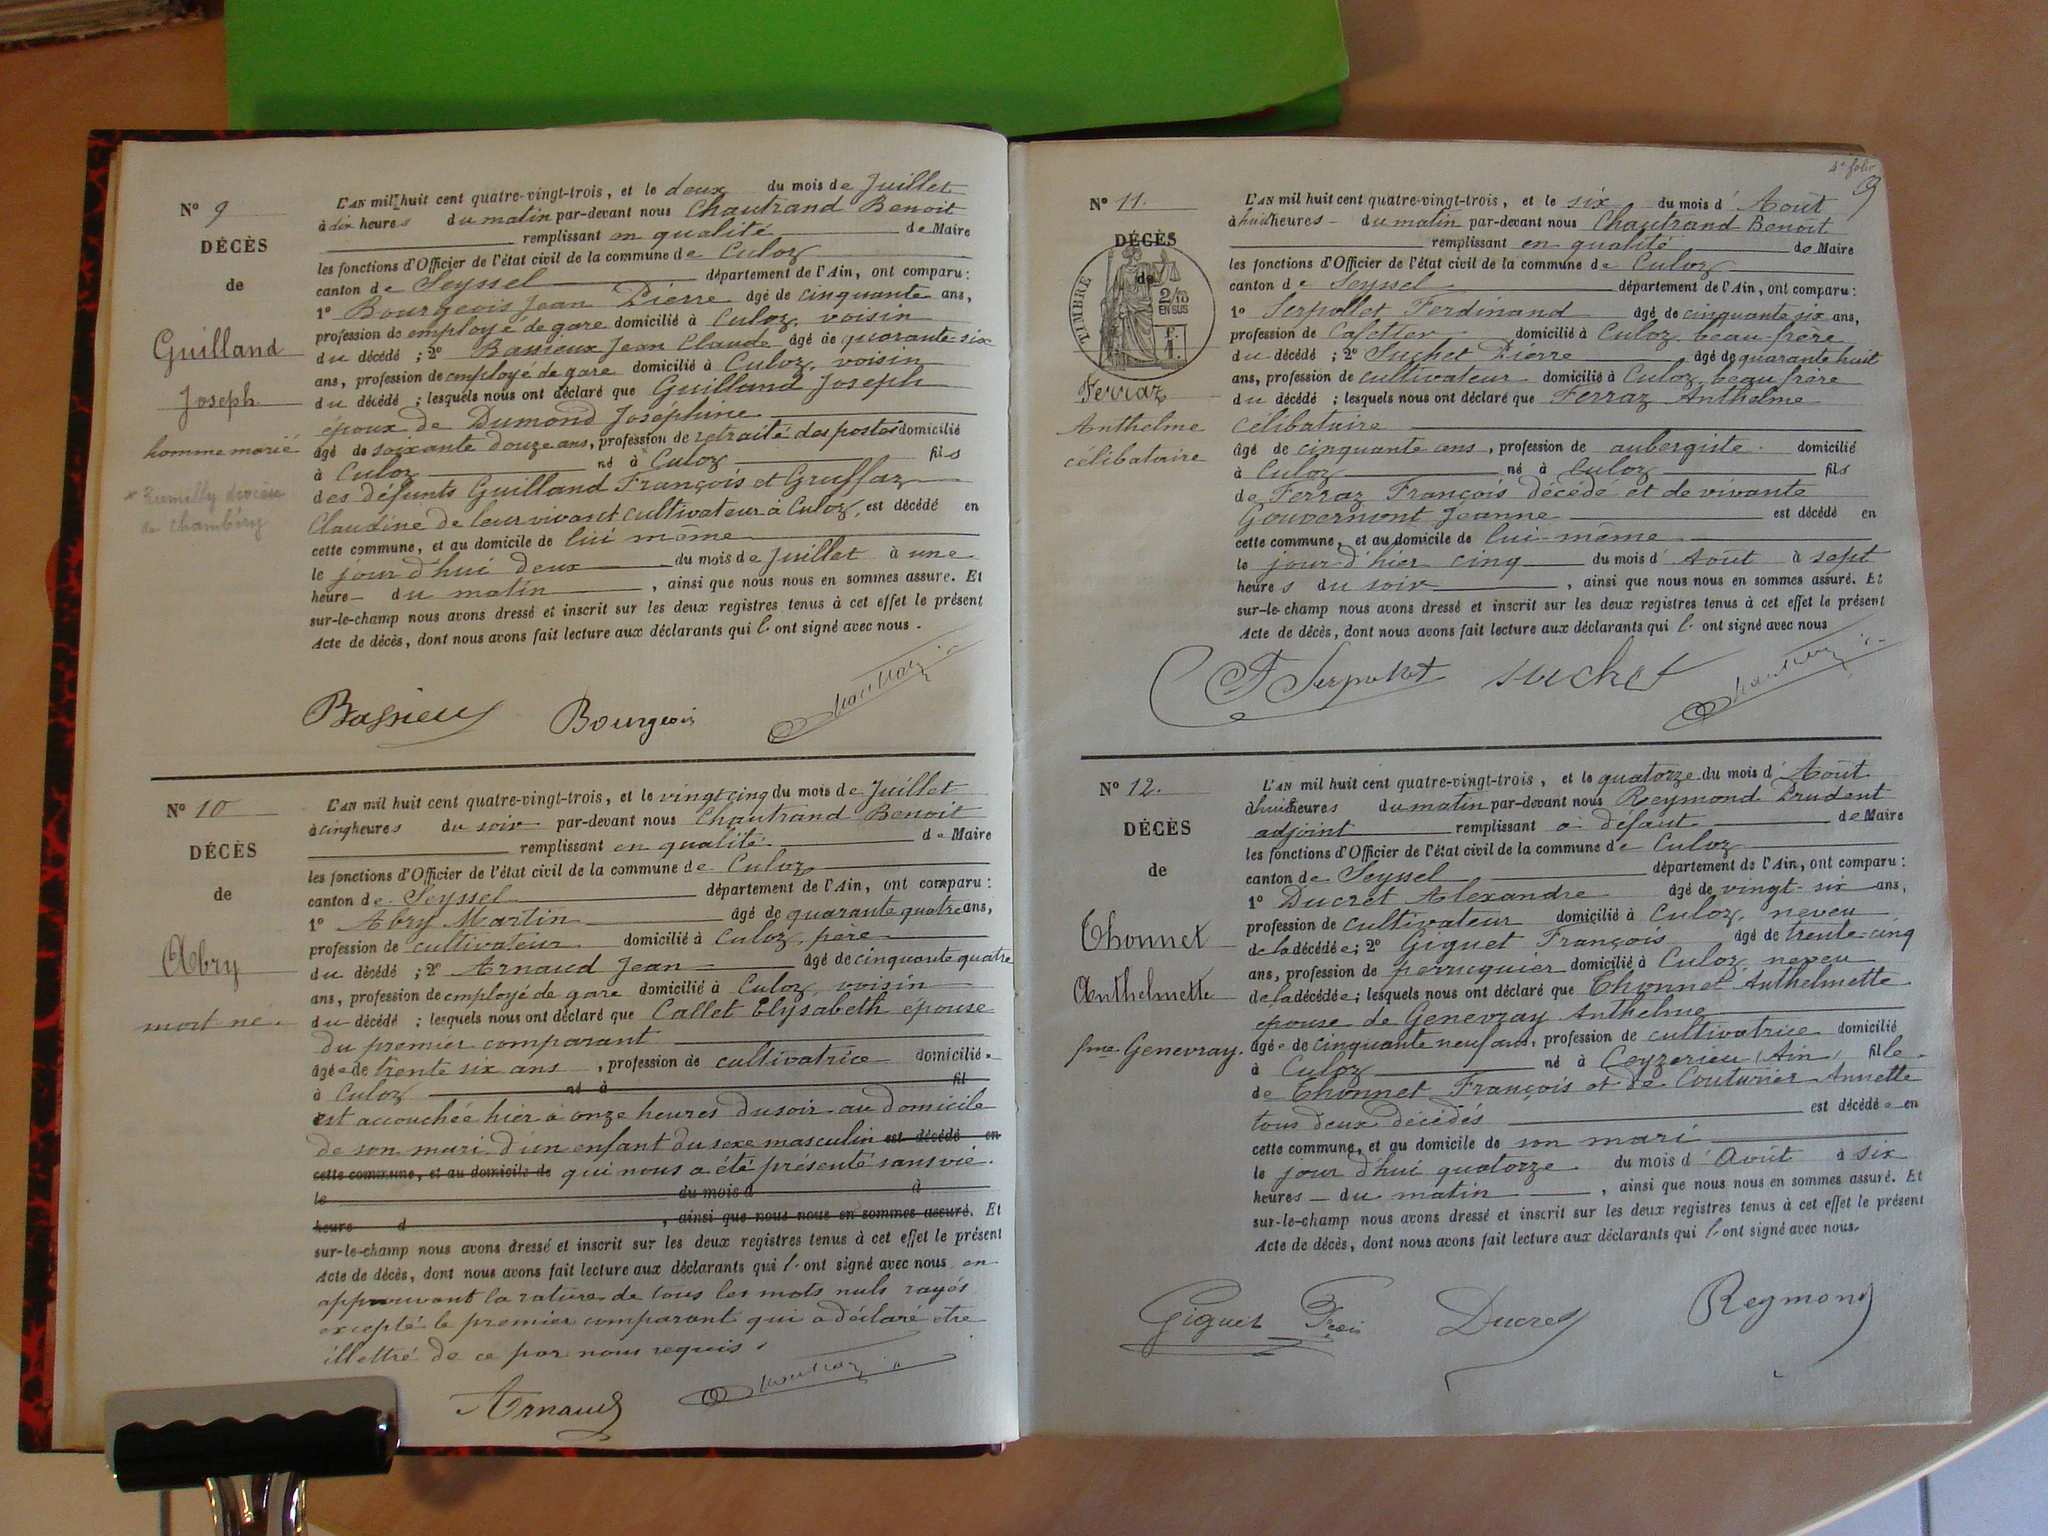 N° 9
DÉCÈS
de
Guilland
Joseph
homme marié
L'AN mil huit cent quatre-vingt-trois, et le deux du mois de Juillet
à dix heures du matin par-devant nous Chautrand Benoit
remplissant en qualité de Maire
les fonctions d'Officier de l'état civil de la commune de Culoz
canton de Seyssel département de l'Ain, ont comparu :
1° Bourgeois Jean Pierre âgé de cinquante ans,
profession de employé de gare domicilié à Culoz, voisin
du décédé ; 2° Bassieux Jean Claude âgé de quarante six
ans, profession de employé de gare domicilié à Culoz, voisin
du décédé ; lesquels nous ont déclaré que Guilland Joseph
époux de Dumond Josephine
âgé de soixante douze ans, profession de retraité des postes domicilié
à Culoz né à Culoz fils
des défunts Guilland François et Gruffaz
Claudine de leur vivant cultivateur à Culoz, est décédé en
cette commune, et au domicile de lui même
le jour d'hui deux du mois de Juillet à une
heure du matin , ainsi que nous nous en sommes assuré. Et
sur-le-champ nous avons dressé et inscrit sur les deux registres tenus à cet effet le présent
Acte de décès, dont nous avons fait lecture aux déclarants qui l'ont signé avec nous.
Bassieux Bourgeois Chautrand
N° 10
DÉCÈS
de
Abry
mort né
L'AN mil huit cent quatre-vingt-trois, et le vingt cinq du mois de Juillet
à cinq heures du soir par-devant nous Chautrand Benoit
remplissant en qualité de Maire
les fonctions d'Officier de l'état civil de la commune de Culoz
canton de Seyssel département de l'Ain, ont comparu :
1° Abry Martin âgé de quarante quatre ans,
profession de cultivateur domicilié à Culoz, père
du décédé ; 2° Arnaud Jean âgé de cinquante quatre
ans, profession de employé de gare domicilié à Culoz, voisin
du décédé ; lesquels nous ont déclaré que Callet Elysabeth épouse
du premier comparant
âgée de trente six ans , profession de cultivatrice domiciliée
à Culoz né à fil
est accouchée hier à onze heures du soir au domicile
de son mari d'un enfant du sexe masculin est décédé en
cette commune, et au domicile de qui nous a été présenté sans vie.
le du mois d à
heure d , ainsi que nous nous en sommes assuré. Et
sur-le-champ nous avons dressé et inscrit sur les deux registres tenus à cet effet le présent
Acte de décès, dont nous avons fait lecture aux déclarants qui l'ont signé avec nous en
approuvant la rature de tous les mots nuls rayés
excepté le premier comparant qui a déclaré être
illettré de ce par nous requis.
Arnaud Chautrand
4e folio
N° 11.
DÉCÈS
de
TIMBRE
2/10
EN SUS
Ferraz
Anthelme
célibataire
L'AN mil huit cent quatre-vingt-trois, et le six du mois d'Août
à huit heures du matin par-devant nous Chautrand Benoît
remplissant en qualité de Maire
les fonctions d'Officier de l'état civil de la commune de Culoz
canton de Seyssel département de l'Ain, ont comparu :
1° Serpollet Ferdinand âgé de cinquante six ans,
profession de Cafetier domicilié à Culoz beau frère
du décédé ; 2° Suchet Pierre âgé de quarante huit
ans, profession de cultivateur domicilié à Culoz, beau frère
du décédé ; lesquels nous ont déclaré que Ferraz Anthelme
célibataire
âgé de cinquante ans , profession de aubergiste domicilié
à Culoz né à Culoz fils
de Ferraz François décédé et de vivante
Gouvernont Jeanne est décédé en
cette commune, et au domicile de lui-même
le jour d'hier cinq du mois d'Août à sept
heures du soir , ainsi que nous nous en sommes assuré. Et
sur-le-champ nous avons dressé et inscrit sur les deux registres tenus à cet effet le présent
Acte de décès, dont nous avons fait lecture aux déclarants qui l'ont signé avec nous
F Serpollet suchet Chautrand
N° 12.
DÉCÈS
de
Thonnet
Anthelmette
fme Genevray.
L'AN mil huit cent quatre-vingt-trois, et le quatorze du mois d'Août
à huit heures du matin par-devant nous Reymond Prudent
adjoint remplissant à défaut de Maire
les fonctions d'Officier de l'état civil de la commune de Culoz
canton de Seyssel département de l'Ain, ont comparu :
1° Ducret Alexandre âgé de vingt-six ans,
profession de cultivateur domicilié à Culoz, neveu
de la décédée ; 2° Giguet François âgé de trente-cinq
ans, profession de perruquier domicilié à Culoz, neveu
de la décédée ; lesquels nous ont déclaré que Thonnet Anthelmette
épouse de Genevray Anthelme
âgée de cinquante neuf ans, profession de cultivatrice domicilié
à Culoz né à Ceyzerieu (Ain) fille
de Thonnet François et de Couturier Annette
tous deux décédés est décédée en
cette commune, et au domicile de son mari
le jour d'hui quatorze du mois d'Août à six
heures du matin , ainsi que nous nous en sommes assuré. Et
sur-le-champ nous avons dressé et inscrit sur les deux registres tenus à cet effet le présent
Acte de décès, dont nous avons fait lecture aux déclarants qui l'ont signé avec nous.
Giguet Fçois Ducret Reymond